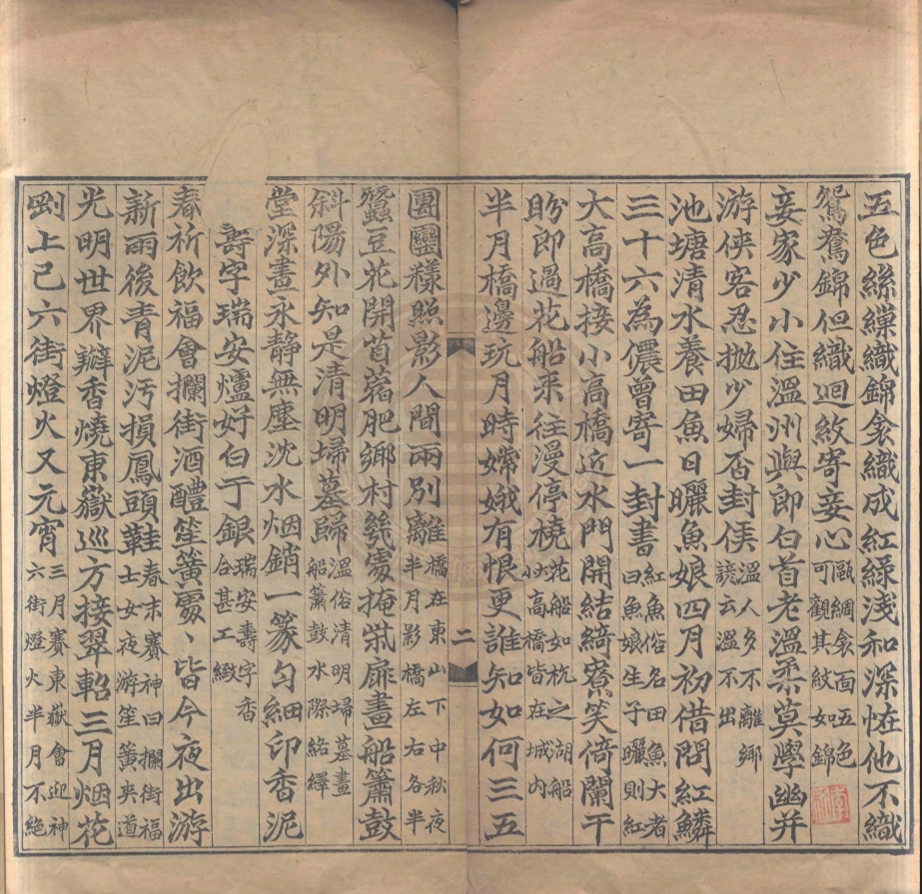 五色絲繰織錦衾織成紅綠淺和深恠他不織
鴛鴦錦但織迴紋寄妾心
甌綢衾面五色
可觀其紋如錦
妾家少小住溫州與郎白首老溫柔莫學幽并
游俠客忍拋少婦否封侯
溫人多不離鄉
諺云溫不出
池塘清水養田魚日曬魚娘四月初借問紅鱗
三十六為儂曾寄一封書
紅魚俗名田魚大者
曰魚娘生子曬則紅
大高橋接小高橋近水門開結綺寮笑倚闌干
盼郎過花船来往漫停橈
花船如杭之湖船
大小高橋皆在城內
半月橋邊玩月時嫦娥有恨更誰知如何三五
二
團圞樣照影人間兩別離
橋在東山下中秋夜
半月影橋左右各半
蠶豆花開苜蓿肥鄉村幾處掩柴扉畫船簫鼓
斜陽外知是清明埽墓歸
溫俗清明埽墓畫
船簫鼓水際絡繹
堂深晝永靜無塵沈水烟銷一篆勻細印香泥
壽字瑞安爐好白于銀
瑞安壽字香
合甚工緻
春祈飲福會攔街酒醴笙簧處、皆今夜出游
新雨後青泥汚損鳳頭鞋
春末賽神曰攔街福
士女夜游笙簧夾道
光明世界瓣香燒東嶽巡方接翠軺三月烟花
剛上巳六街燈火又元宵
三月賽東嶽會迎神
六街燈火半月不絕